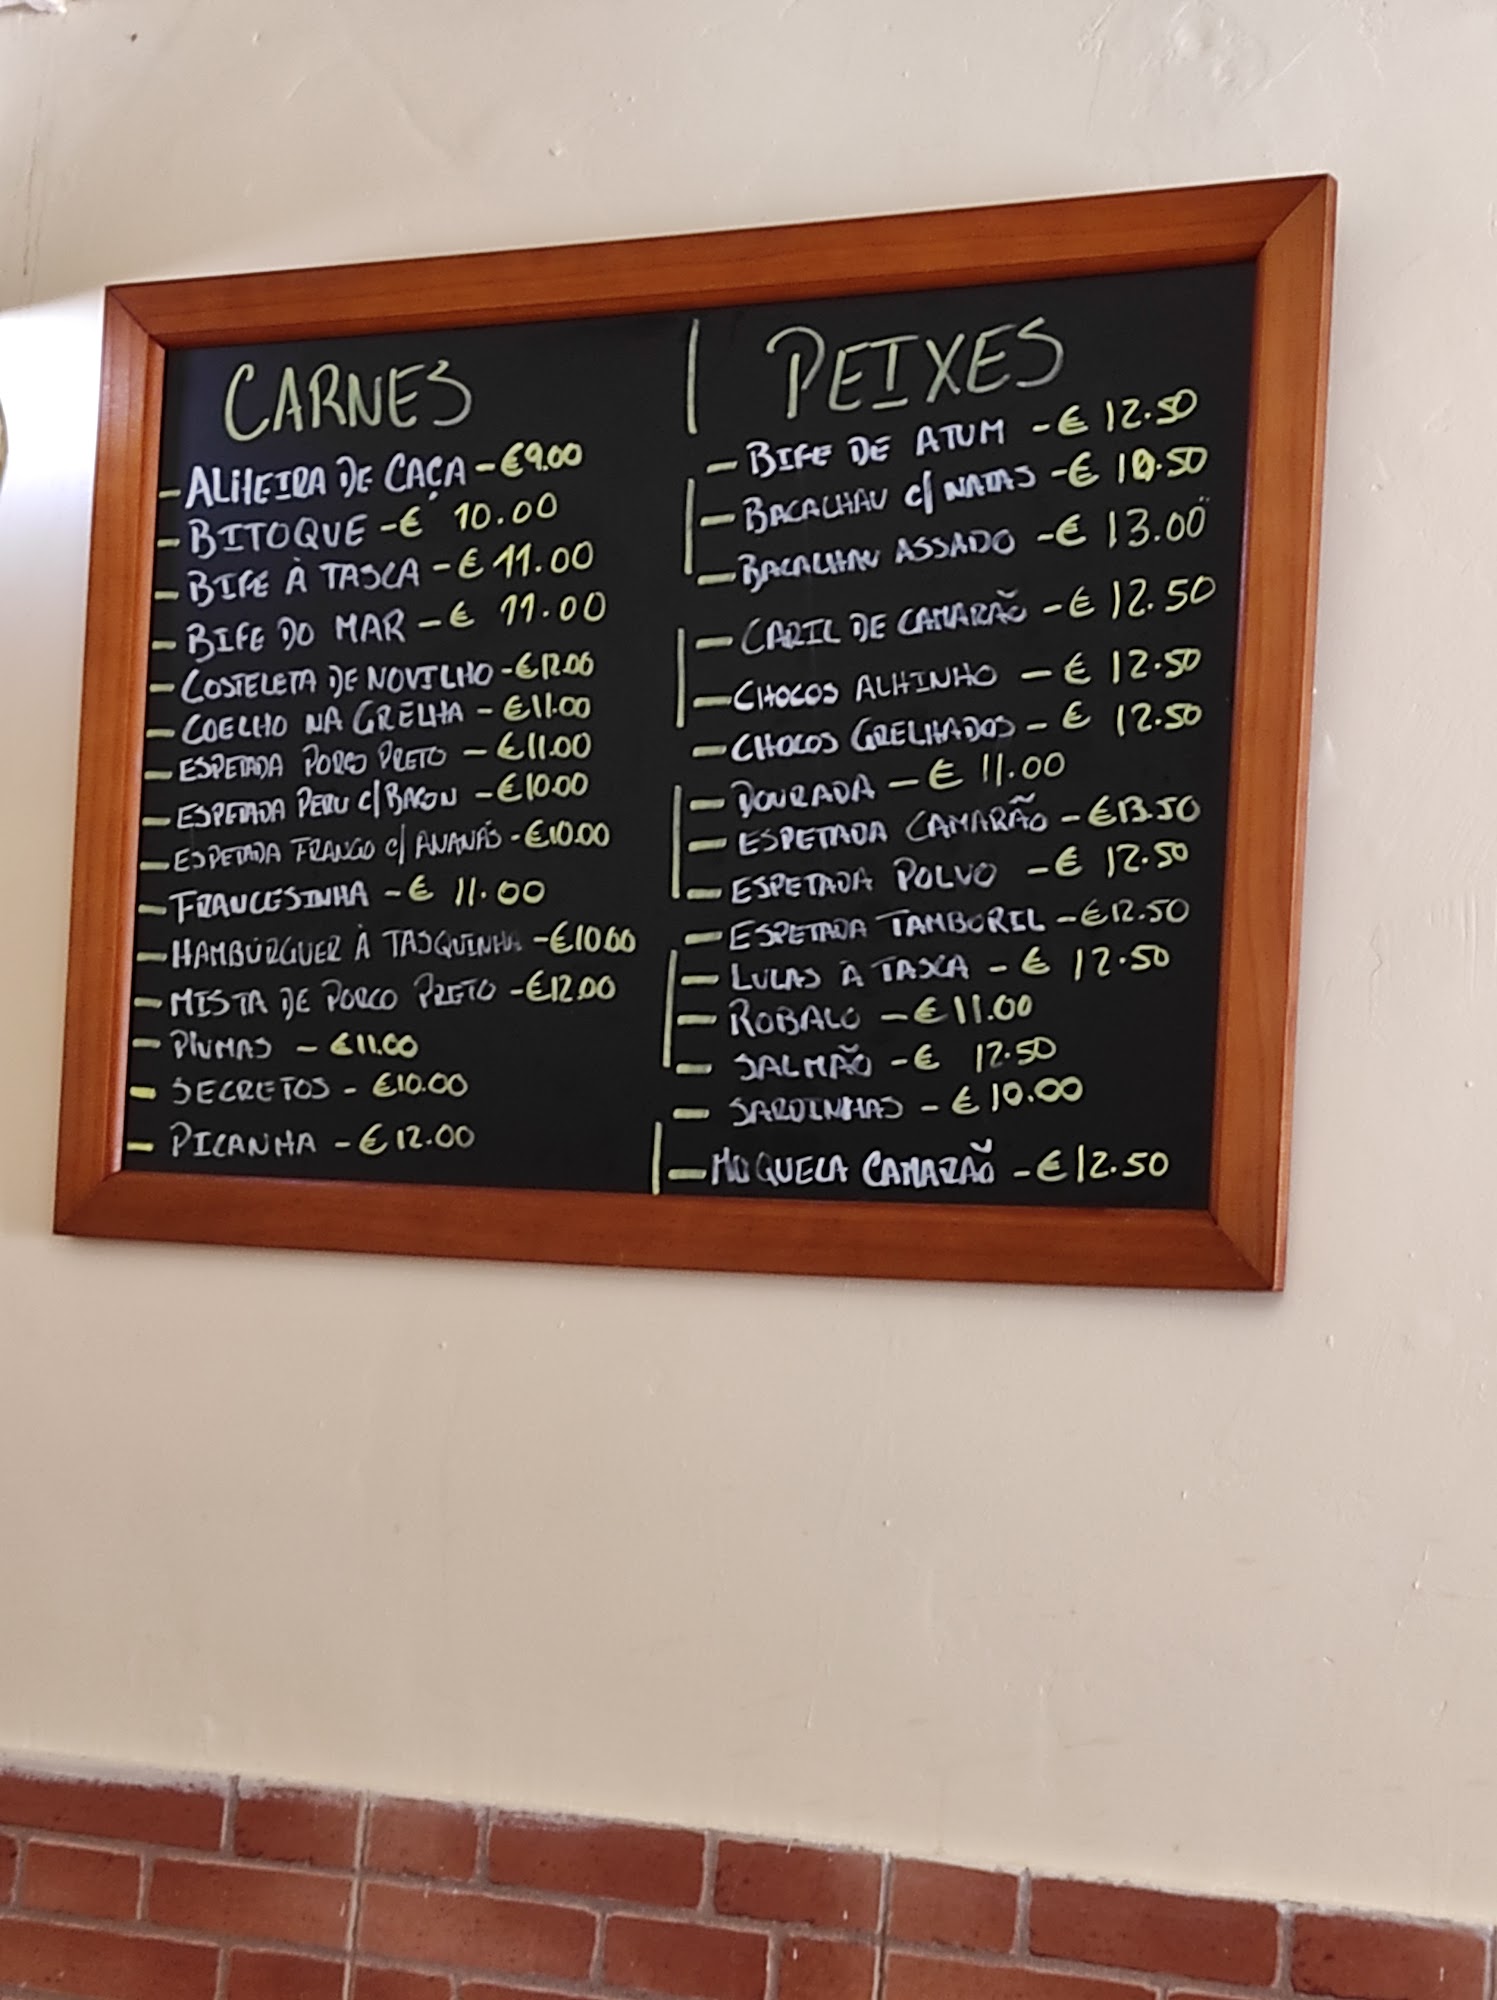 CARNES
- ALHEIRA DE CAÇA - €9.00
- BITOQUE - € 10.00
- BIFE À TASCA - € 11.00
- BIFE DO MAR - € 11.00
- COSTELETA DE NOVILHO - €12.00
- COELHO NA GRELHA - €11.00
- ESPETADA PORCO PRETO - €11.00
- ESPETADA PERU C/ BACON - €10.00
- ESPETADA FRANGO C/ ANANÁS - €10.00
- FRANCESINHA - € 11.00
- HAMBÚRGUER À TASQUINHA - €10.00
- MISTA DE PORCO PRETO - €12.00
- PLUMAS - €11.00
- SECRETOS - €10.00
- PICANHA - €12.00
PEIXES
- BIFE DE ATUM - € 12.50
- BACALHAU C/ NATAS - € 10.50
- BACALHAU ASSADO - € 13.00
- CARIL DE CAMARÃO - € 12.50
- CHOCOS ALHINHO - € 12.50
- CHOCOS GRELHADOS - € 12.50
- DOURADA - € 11.00
- ESPETADA CAMARÃO - €13.50
- ESPETADA POLVO - € 12.50
- ESPETADA TAMBORIL - €12.50
- LULAS À TASCA - € 12.50
- ROBALO - €11.00
- SALMÃO - € 12.50
- SARDINHAS - € 10.00
- MOQUECA CAMARÃO - €12.50